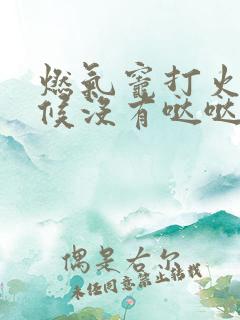 燃氣竈打火
候沒有哒哒
偶是右尔
未经同意禁止转载